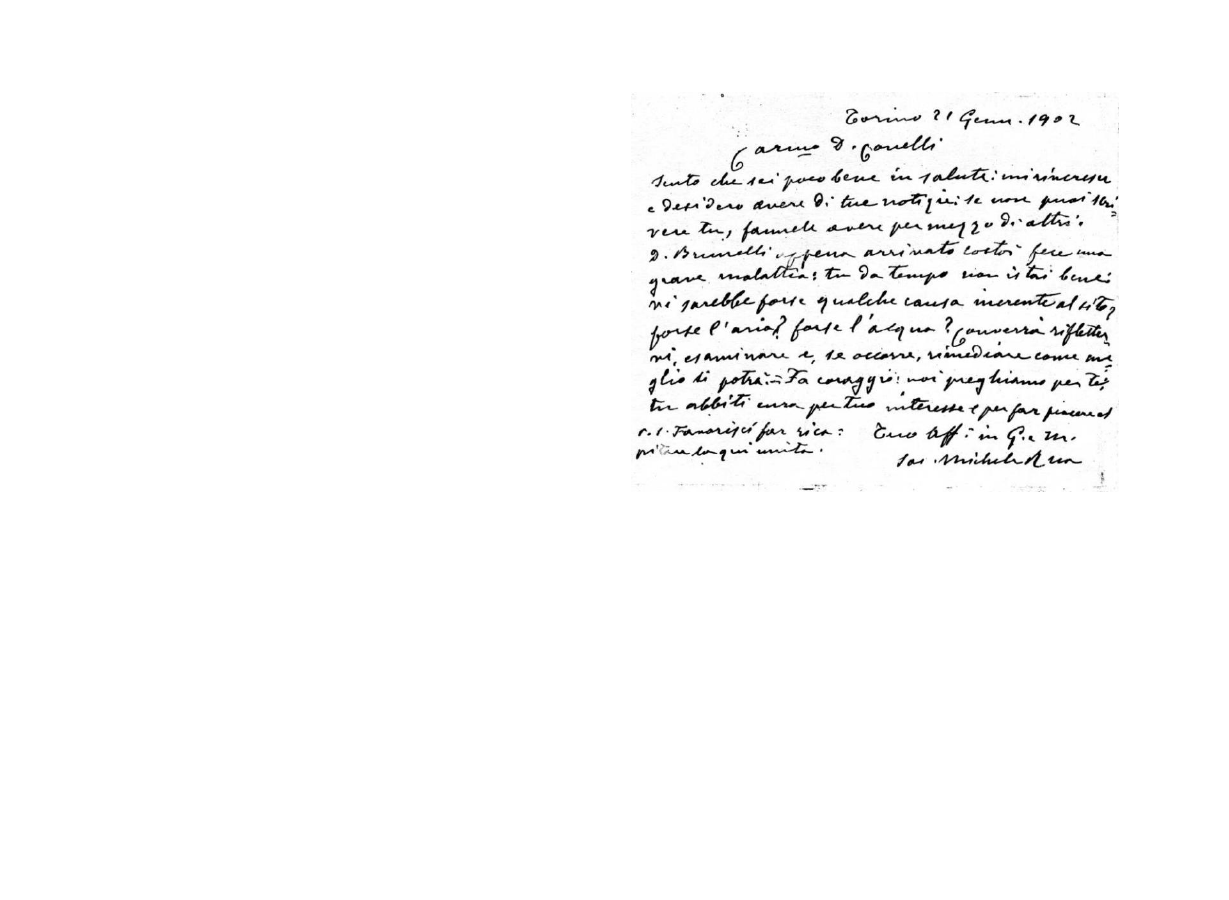 Torino 21 Genn. 1902
Carmo D. Conelli
Sento che sei poco bene in salute: mi rincresce
e desidero avere di tue notizie: se non puoi scri=
vere tu, fammele avere per mezzo di altri.
D. Brunelli appena arrivato costì fece una
grave malattia: tu da tempo non istai bene:
vi sarebbe forse qualche causa inerente al sito?
forse l'aria? forse l'acqua? Converrà rifletter
vi, esaminare e, se occorre, rimediare come me=
glio si potrà.= Fa coraggio: noi preghiamo per te;
tu abbiti cura per tuo interesse e per far piacere al
Favorisci far rica= Tuo aff: in G. e M.
pitare la qui unita. Sac. Michele Rua